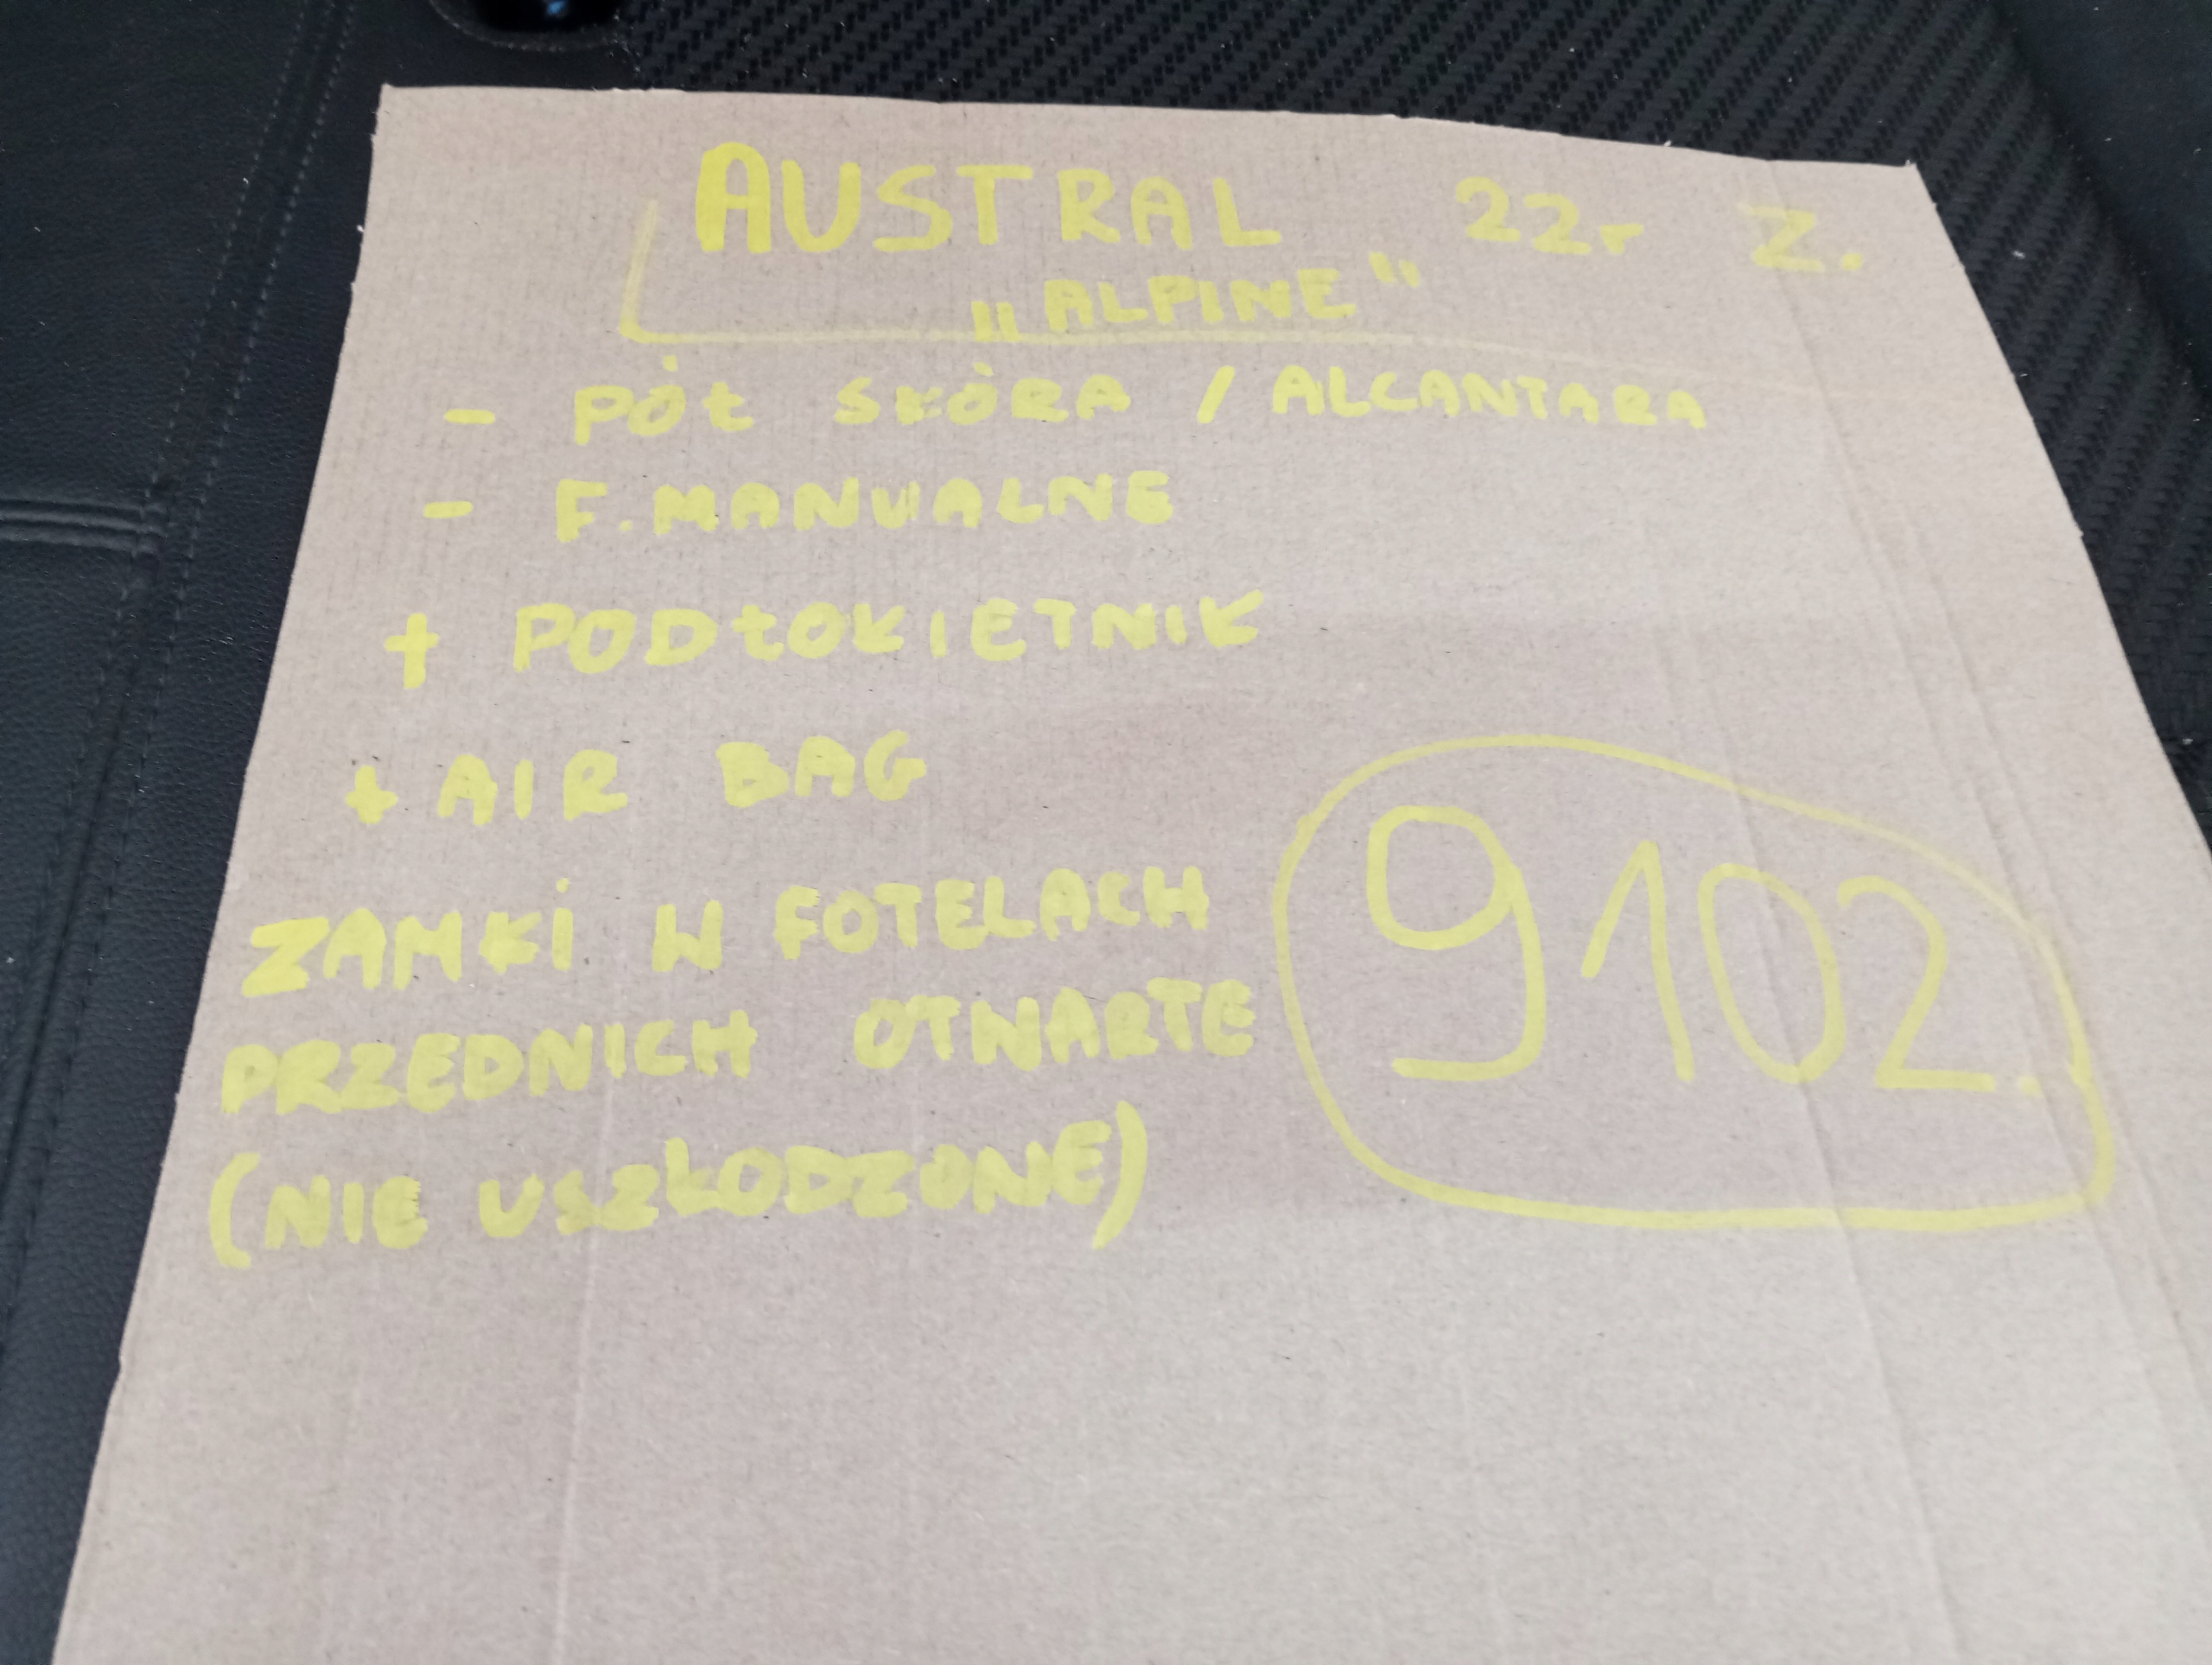 AUSTRAL 22r Z.
„ALPINE"
- PÓŁ SKÓRA / ALCANTARA
- F.MANUALNE
+ PODŁOKIETNIK
+ AIR BAG
ZAMKI W FOTELACH
PRZEDNICH OTWARTE
(NIE USZKODZONE)
9102.